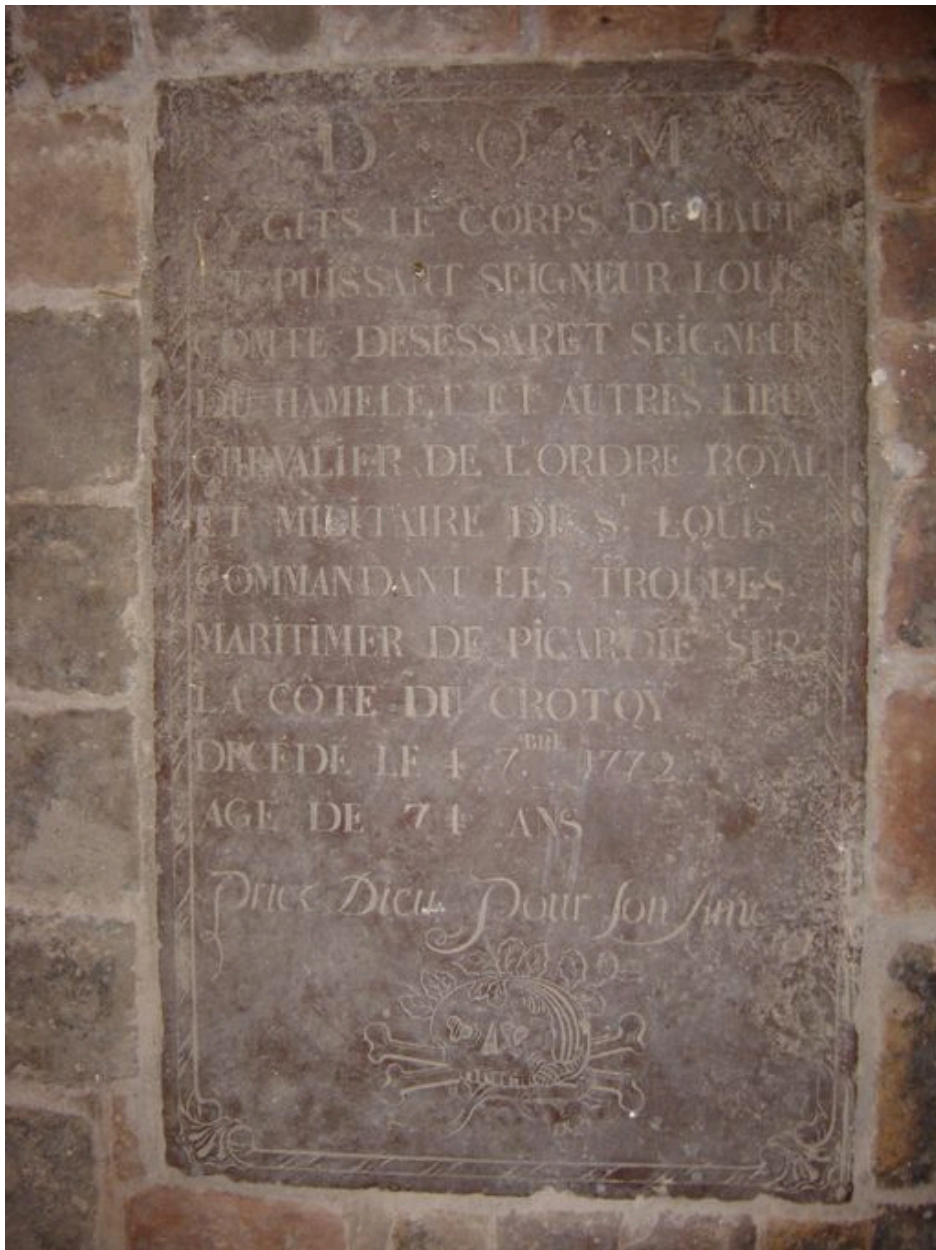 D O M
CY GITS LE CORPS DE HAUT
ET PUISSANT SEIGNEUR LOUIS
COMTE DESESSARET SEIGNEUR
DU HAMELET ET AUTRES LIEUX
CHEVALIER DE L'ORDRE ROYAL
ET MILITAIRE DE St LOUIS
COMMANDANT LES TROUPES
MARITIMER DE PICARDIE SUR
LA CÔTE DU CROTOY
DECÉDÉ LE 4 7.BRE 1772
AGE DE 74 ANS
Priez Dieu Pour son Ame